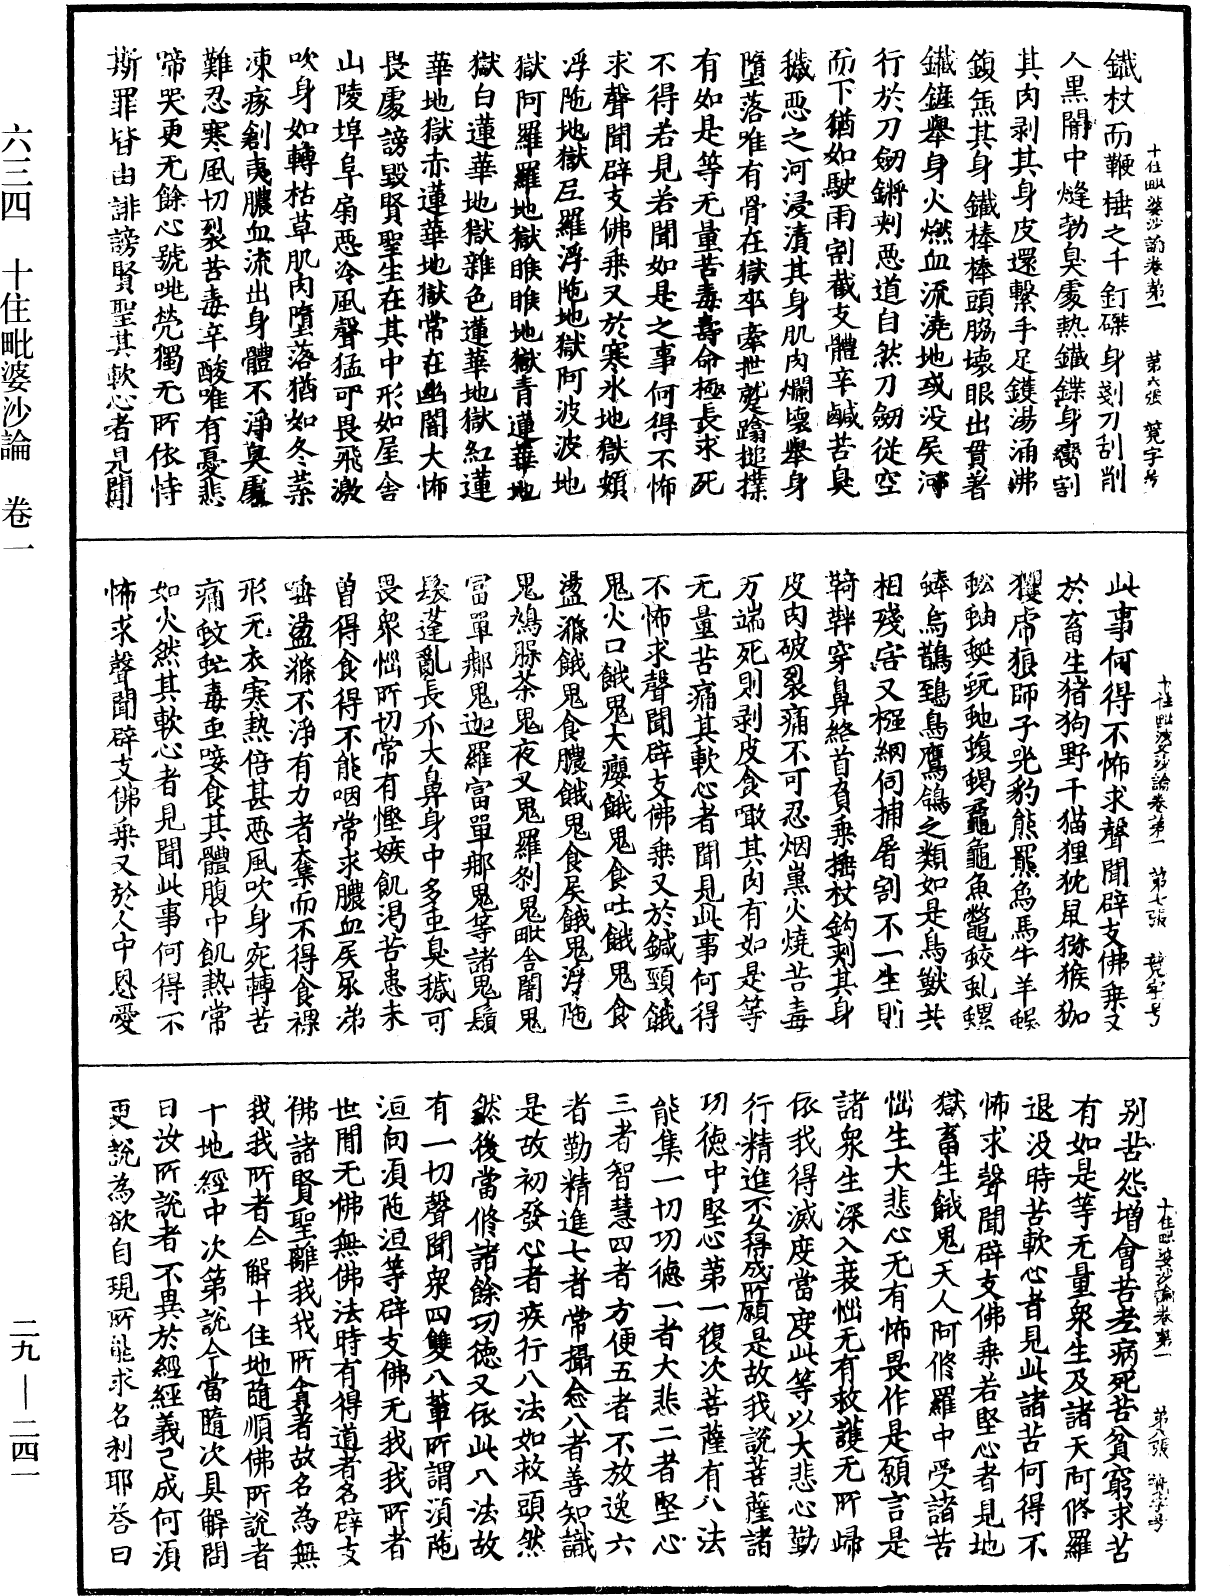 鐵杖而鞭棰之千釘磔身剗刀刮削
人黑闇中熢勃臭處熱鐵鍱身臠割
其肉剥其身皮還繫手足鑊湯涌沸
鍑煑其身鐵棒棒頭腦壞眼出貫著
鐵鏟舉身火燃血流澆地或没屎河
行於刀劒鏘刺惡道自然刀劒從空
而下猶如駛雨割截支體辛鹹苦臭
穢惡之河浸漬其身肌肉爛壞舉身
墮落唯有骨在獄卒牽抴蹴蹹搥撲
有如是等无量苦毒壽命極長求死
不得若見若聞如是之事何得不怖
求聲聞辟支佛乗又於寒氷地獄頞
浮陁地獄尼羅浮陁地獄阿波波地
獄阿羅羅地獄睺睺地獄青蓮華地
獄白蓮華地獄雜色蓮華地獄紅蓮
華地獄赤蓮華地獄常在幽闇大怖
畏處謗毀賢聖生在其中形如屋舍
山陵埠阜扇惡冷風聲猛可畏飛激
吹身如轉枯草肌肉墮落猶如冬葉
凍瘃創夷膿血流出身體不淨臭處
難忍寒風切裂苦毒辛酸唯有憂悲
啼哭更无餘心號咷煢獨无所依恃
斯罪皆由誹謗賢聖其軟心者見聞
十住毗婆沙論卷第一　第六張　競字号
此事何得不怖求聲聞辟支佛乗又
於畜生猪狗野干猫狸狖鼠獼猴猳
玃虎狼師子兕豹熊羆烏馬牛羊蜈
蚣蚰蜒蚖虵蝮蝎黿龜魚鼈蛟虬螺
蜯烏鵲鵄鳥鷹鴿之類如是鳥獸共
相殘害又𦊰網伺捕屠割不一生則
羇靽穿鼻絡首負乗捶杖鈎刺其身
皮肉破裂痛不可忍烟熏火燒苦毒
万端死則剥皮食噉其肉有如是等
无量苦痛其軟心者聞見此事何得
不怖求聲聞辟支佛乗又於鍼頸餓
鬼火口餓鬼大癭餓鬼食吐餓鬼食
盪滌餓鬼食膿餓鬼食屎餓鬼浮陁
鬼鳩脲茶鬼夜叉鬼羅刹鬼毗舍闍鬼
富單那鬼迦羅富單那鬼等諸鬼鬚
髮蓬亂長爪大鼻身中多虫臭穢可
畏衆惱所切常有慳嫉飢渴苦患未
曽得食得不能咽常求膿血屎尿涕
唾盪滌不淨有力者奪而不得食裸
形无衣寒熱倍甚惡風吹身宛轉苦
痛蚊虻毒虫唼食其體腹中飢熱常
如火然其軟心者見聞此事何得不
怖求聲聞辟支佛乗又於人中恩愛
十住毗婆沙論卷第一　第七張　競字号
别苦怨增會苦老病死苦貧窮求苦
有如是等无量衆生及諸天阿脩羅
退没時苦軟心者見此諸苦何得不
怖求聲聞辟支佛乗若堅心者見地
獄畜生餓鬼天人阿脩羅中受諸苦
惱生大悲心无有怖畏作是願言是
諸衆生深入衰惱无有救護无所歸
依我得滅度當度此等以大悲心勤
行精進不久得成所願是故我說菩薩諸
功德中堅心第一復次菩薩有八法
能集一切功德一者大悲二者堅心
三者智慧四者方便五者不放逸六
者勤精進七者常攝念八者善知識
是故初發心者疾行八法如救頭然
然後當脩諸餘功德又依此八法故
有一切聲聞衆四雙八輩所謂湏陁
洹向湏陁洹等辟支佛无我我所者
世閒无佛無佛法時有得道者名辟支
佛諸賢聖離我我所貪著故名為無
我我所者今解十住地隨順佛所說者
十地經中次第説今當隨次具解問
曰汝所說者不異於經經義已成何湏
更說為欲自現所能求名利耶荅曰
十住毗婆沙論卷第一　第八張　競字号
六三四　十住毗婆沙論　卷一
二九—二四一